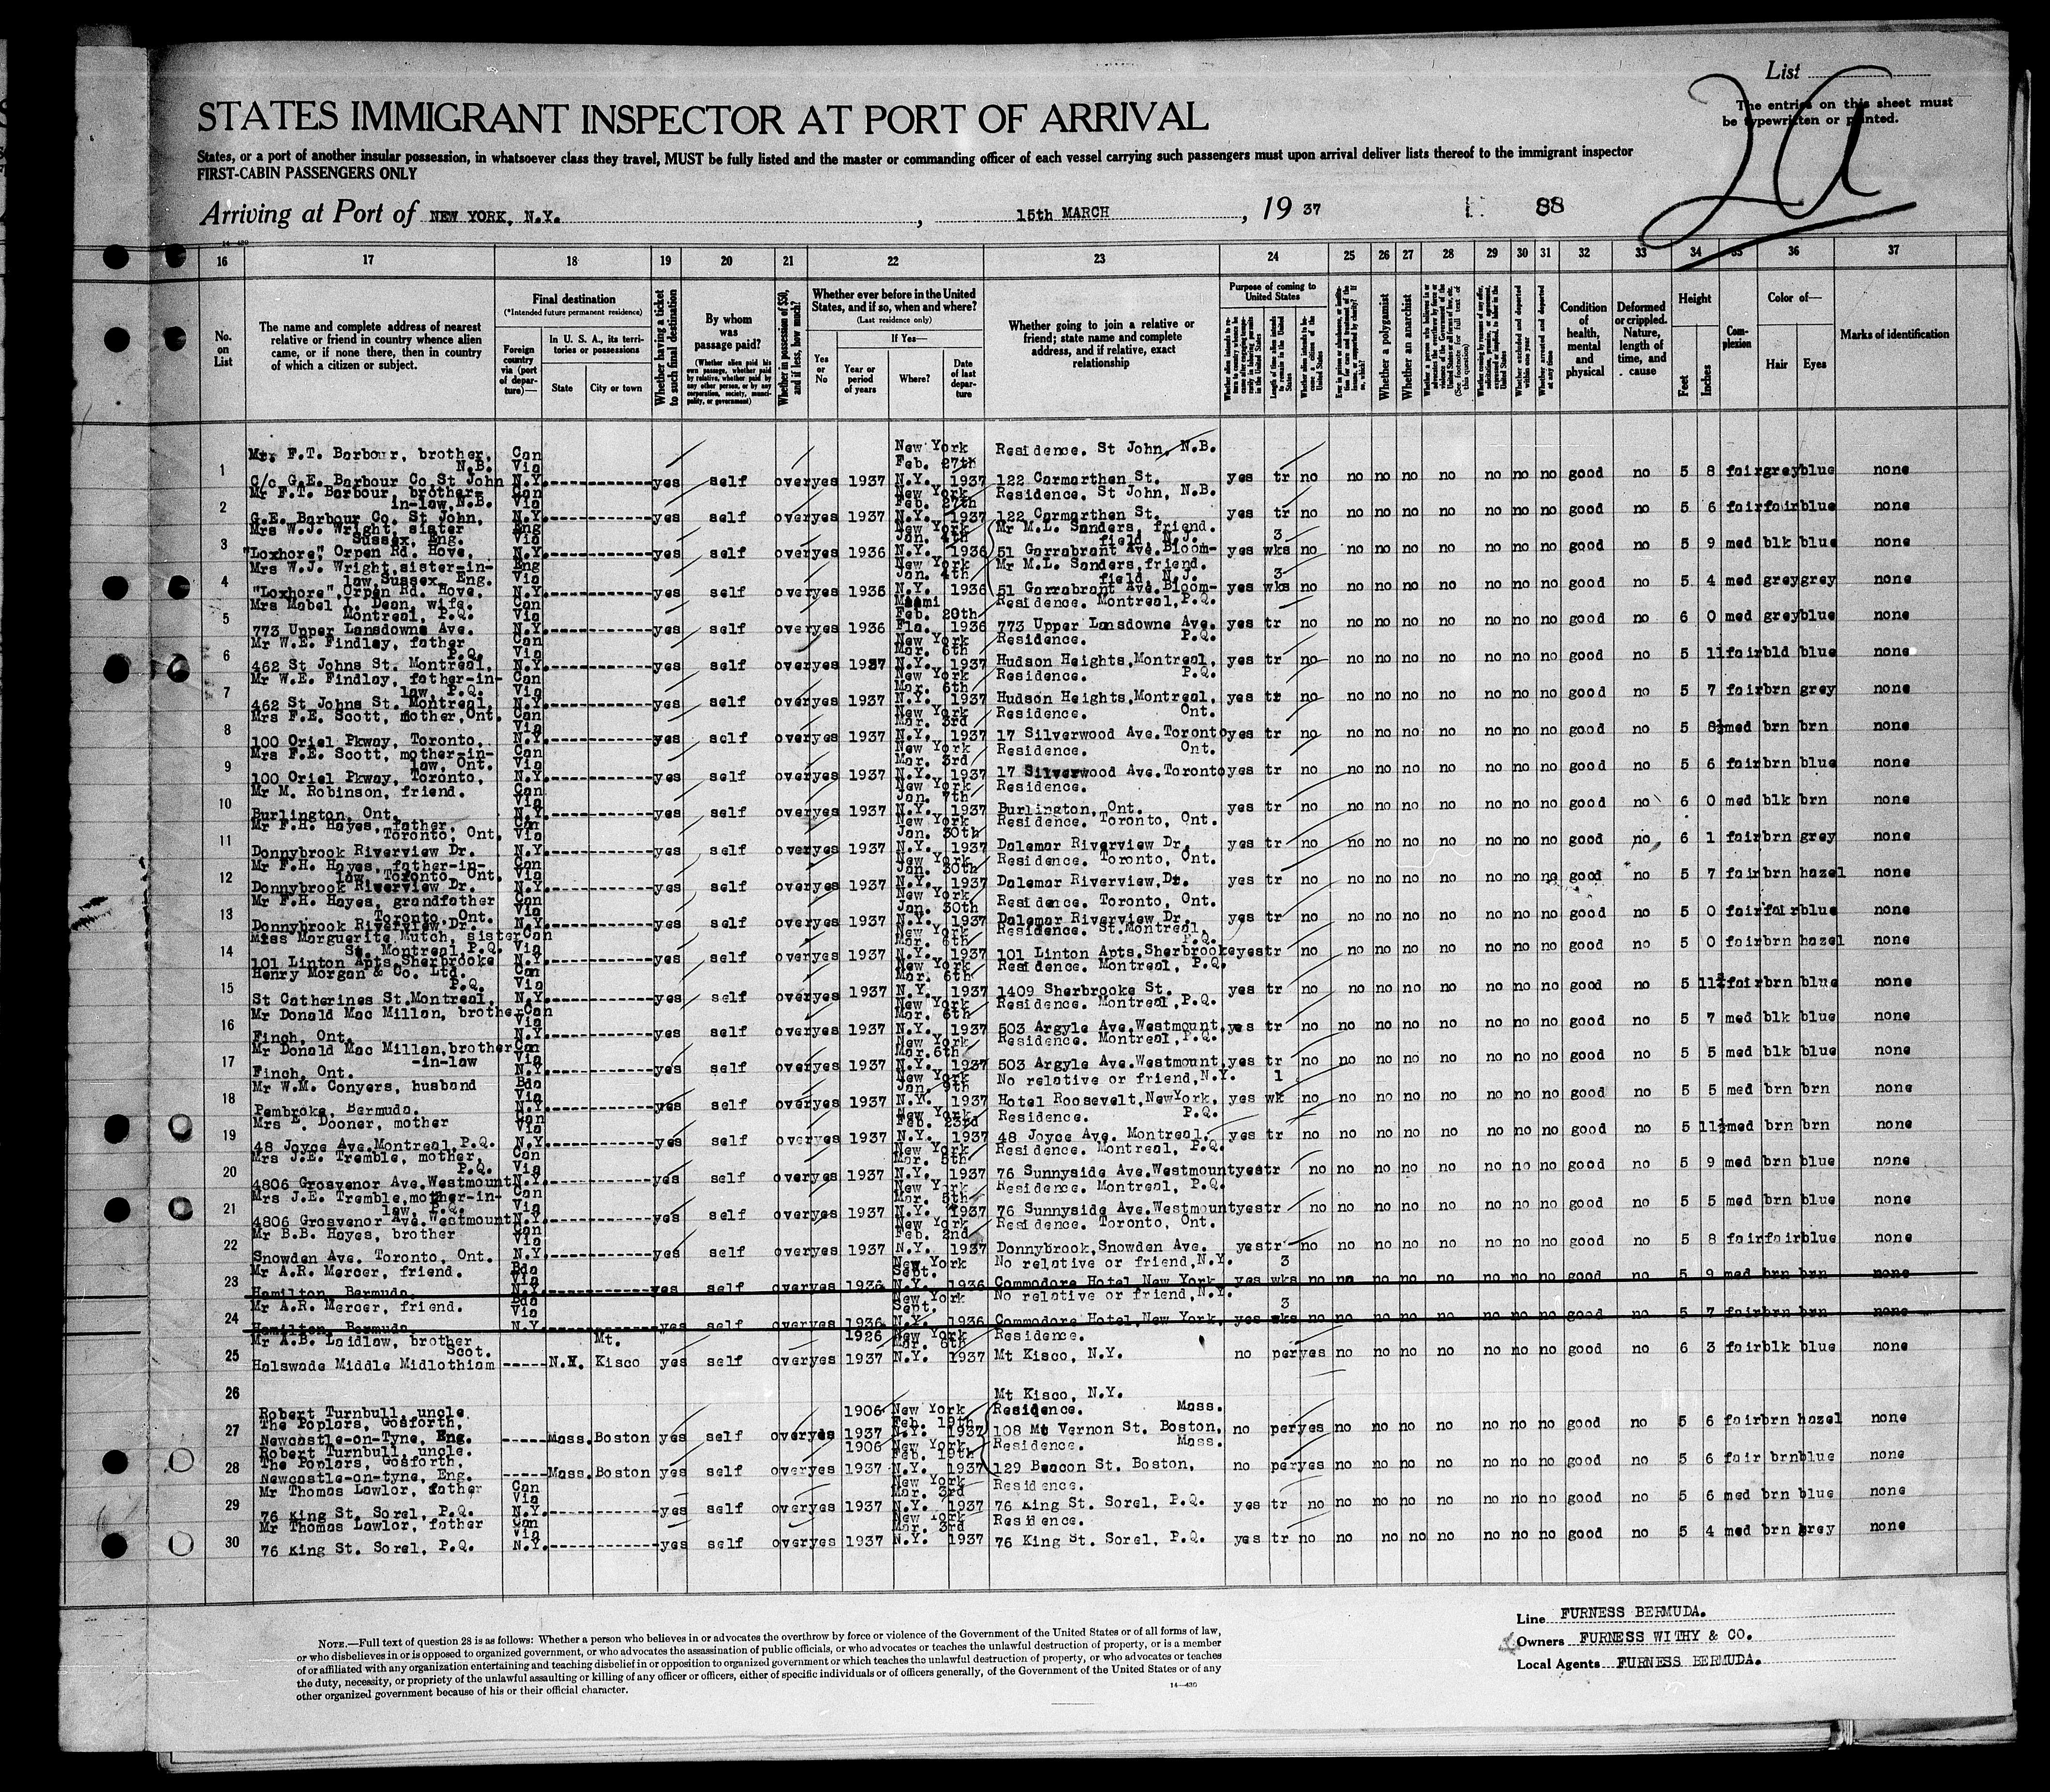 List
The entries on this sheet must
be typewritten or printed.
20
STATES IMMIGRANT INSPECTOR AT PORT OF ARRIVAL
States, or a port of another insular possession, in whatsoever class they travel, MUST be fully listed and the master or commanding officer of each vessel carrying such passengers must upon arrival deliver lists thereof to the immigrant inspector
FIRST-CABIN PASSENGERS ONLY
Arriving at Port of NEW YORK, N.Y., 15th MARCH, 19 37 88
14-430
16 17 18 19 20 21 22 23 24 25 26 27 28 29 30 31 32 33 34 35 36 37
No. on List
The name and complete address of nearest relative or friend in country whence alien came, or if none there, then in country of which a citizen or subject.
Final destination
(*Intended future permanent residence)
Foreign country via (port of departure)—
In U. S. A., its territories or possessions
State
City or town
Whether having a ticket to such final destination
By whom was passage paid?
(Whether alien paid his own passage, whether paid by relative, whether paid by any other person, or by any corporation, society, municipality, or government)
Whether in possession of $50, and if less, how much?
Whether ever before in the United States, and if so, when and where?
(Last residence only)
Yes or No
If Yes—
Year or period of years
Where?
Date of last departure
Whether going to join a relative or friend; state name and complete address, and if relative, exact relationship
Purpose of coming to United States
Whether a polygamist
Whether an anarchist
Condition of health, mental and physical
Deformed or crippled. Nature, length of time, and cause
Height
Feet
Inches
Complexion
Color of—
Hair
Eyes
Marks of identification
1 Mr. F.T. Barbour, brother, N.B. C/c G.E. Barbour Co. St John Can Via N.Y. yes self over yes 1937 New York N.Y. Feb. 27th 1937 Residence. St John, N.B. 122 Carmarthen St. yes tr no no no no no no no no good no 5 8 fair grey blue none
2 Mr F.T. Barbour, brother-in-law, N.B. G.E. Barbour Co. St John, Can Via N.Y. yes self over yes 1937 New York N.Y. Feb. 27th 1937 Residence. St John, N.B. 122 Carmarthen St. yes tr no no no no no no no no good no 5 6 fair fair blue none
3 Mrs W.J. Wright, sister Sussex, Eng. "Loxhore" Orpen Rd. Hove, Eng Via N.Y. yes self over yes 1936 New York N.Y. Jan. 4th 1936 Mr M.L. Sanders, friend. 51 Garrabrant Ave. Bloomfield, N.J. yes 3 wks no no no no no no no no good no 5 9 med blk blue none
4 Mrs W.J. Wright, sister-in-law, Sussex, Eng. "Loxhore", Orpen Rd. Hove, Eng Via N.Y. yes self over yes 1936 New York N.Y. Jan. 4th 1936 Mr M.L. Sanders, friend. 51 Garrabrant Ave. Bloomfield, N.J. yes 3 wks no no no no no no no no good no 5 4 med grey grey none
5 Mrs Mabel I. Dean, wife. Montreal, P.Q. 773 Upper Lansdowne Ave. Can Via N.Y. yes self over yes 1936 Miami Fla. Feb. 20th 1936 Residence. Montreal, P.Q. 773 Upper Lansdowne Ave. yes tr no no no no no no no no good no 6 0 med grey blue none
6 Mr W.E. Findley, father P.Q. 462 St Johns St. Montreal, Can Via N.Y. yes self over yes 1937 New York N.Y. Mar. 6th 1937 Residence. P.Q. Hudson Heights, Montreal, yes tr no no no no no no no no good no 5 11 fair bld blue none
7 Mr W.E. Findlay, father-in-law, P.Q. 462 St Johns St. Montreal, Can Via N.Y. yes self over yes 1937 New York N.Y. Mar. 6th 1937 Residence. P.Q. Hudson Heights, Montreal, yes tr no no no no no no no no good no 5 7 fair brn grey none
8 Mrs F.E. Scott, mother, Ont. 100 Oriel Pkway, Toronto, Can Via N.Y. yes self over yes 1937 New York N.Y. Mar. 3rd 1937 Residence. Ont. 17 Silverwood Ave. Toronto yes tr no no no no no no no no good no 5 8½ med brn brn none
9 Mrs F.E. Scott, mother-in-law, Ont. 100 Oriel Pkway, Toronto, Can Via N.Y. yes self over yes 1937 New York N.Y. Mar. 3rd 1937 Residence. Ont. 17 Silverwood Ave. Toronto yes tr no no no no no no no no good no 5 6 fair brn blue none
10 Mr M. Robinson, friend. Burlington, Ont. Can Via N.Y. yes self over yes 1937 New York N.Y. Jan. 7th 1937 Residence. Burlington, Ont. yes tr no no no no no no no no good no 6 0 med blk brn none
11 Mr F.H. Hayes, father, Toronto, Ont. Donnybrook Riverview Dr. Can Via N.Y. yes self over yes 1937 New York N.Y. Jan. 30th 1937 Residence. Toronto, Ont. Dalemar Riverview Dr. yes tr no no no no no no no no good no 6 1 fair brn grey none
12 Mr F.H. Hayes, father-in-law, Toronto, Ont. Donnybrook Riverview Dr. Can Via N.Y. yes self over yes 1937 New York N.Y. Jan. 30th 1937 Residence. Toronto, Ont. Dalemar Riverview, Dr. yes tr no no no no no no no no good no 5 7 fair brn hazel none
13 Mr F.H. Hayes, grandfather Toronto, Ont. Donnybrook Riverview Dr. Can Via N.Y. yes self over yes 1937 New York N.Y. Jan. 30th 1937 Residence. Toronto, Ont. Dalemar Riverview Dr. yes tr no no no no no no no no good no 5 0 fair fair blue none
14 Miss Marguerite Mutch, sister St. Montreal, P.Q. 101 Linton Apts. Sherbrooke Can Via N.Y. yes self over yes 1937 New York N.Y. Mar. 6th 1937 Residence. St. Montreal, P.Q. 101 Linton Apts. Sherbrooke yes tr no no no no no no no no good no 5 0 fair brn hazel none
15 Henry Morgan & Co. Ltd. P.Q. St Catherines St. Montreal, Can Via N.Y. yes self over yes 1937 New York N.Y. Mar. 6th 1937 Residence. Montreal, P.Q. 1409 Sherbrooke St. yes tr no no no no no no no no good no 5 11½ fair brn blue none
16 Mr Donald Mac Millan, brother Finch, Ont. Can Via N.Y. yes self over yes 1937 New York N.Y. Mar. 6th 1937 Residence. Montreal, P.Q. 503 Argyle Ave. Westmount, yes tr no no no no no no no no good no 5 7 med blk blue none
17 Mr Donald Mac Millan, brother-in-law Finch, Ont. Can Via N.Y. yes self over yes 1937 New York N.Y. Mar. 6th 1937 Residence. Montreal, P.Q. 503 Argyle Ave. Westmount, yes tr no no no no no no no no good no 5 5 med blk blue none
18 Mr W.M. Conyers, husband Pembroke, Bermuda. Bda Via N.Y. yes self over yes 1937 New York N.Y. Jan. 9th 1937 No relative or friend, N.Y. Hotel Roosevelt, New York, yes 1 wk no no no no no no no no good no 5 5 med brn brn none
19 Mrs E. Dooner, mother 48 Joyce Ave. Montreal, P.Q. Can Via N.Y. yes self over yes 1937 New York N.Y. Feb. 23rd 1937 Residence. P.Q. 48 Joyce Ave. Montreal. yes tr no no no no no no no no good no 5 11½ med brn brn none
20 Mrs J.E. Tremble, mother, P.Q. 4806 Grosvenor Ave. Westmount Can Via N.Y. yes self over yes 1937 New York N.Y. Mar. 5th 1937 Residence. Montreal, P.Q. 76 Sunnyside Ave. Westmount yes tr no no no no no no no no good no 5 9 med brn blue none
21 Mrs J.E. Tremble, mother-in-law, P.Q. 4806 Grosvenor Ave. Westmount Can Via N.Y. yes self over yes 1937 New York N.Y. Mar. 5th 1937 Residence. Montreal, P.Q. 76 Sunnyside Ave. Westmount yes tr no no no no no no no no good no 5 5 med brn blue none
22 Mr B.B. Hayes, brother Snowden Ave. Toronto, Ont. Can Via N.Y. yes self over yes 1937 New York N.Y. Feb. 2nd 1937 Residence. Toronto, Ont. Donnybrook, Snowden Ave. yes tr no no no no no no no no good no 5 8 fair fair blue none
23 Mr A.R. Mercer, friend. Hamilton, Bermuda Bda Via N.Y. yes self over yes 1936 New York N.Y. Sept. 1936 No relative or friend, N.Y. Commodore Hotel, New York, yes 3 wks no no no no no no no no good no 5 9 med brn brn none
24 Mr A.R. Mercer, friend. Hamilton, Bermuda Bda Via N.Y. yes self over yes 1936 New York N.Y. Sept. 1936 No relative or friend, N.Y. Commodore Hotel, New York, yes 3 wks no no no no no no no no good no 5 7 fair brn brn none
25 Mr A.B. Laidlaw, brother Scot. Halswade Middle Midlothiam N.Y. Mt. Kisco yes self over yes 1926 1937 New York N.Y. Mar. 6th 1937 Residence. Mt Kisco, N.Y. no per yes no no no no no no no good no 6 3 fair blk blue none
26 Mt Kisco, N.Y.
27 Robert Turnbull, uncle The Poplars, Gosforth, Newcastle-on-Tyne, Eng. Mass. Boston yes self over yes 1906 1937 New York N.Y. Feb. 19th 1937 Residence. Mass. 108 Mt Vernon St. Boston, no per yes no no no no no no no good no 5 6 fair brn hazel none
28 Robert Turnbull, uncle. The Poplars, Gosforth, Newcastle-on-tyne, Eng. Mass. Boston yes self over yes 1906 1937 New York N.Y. Feb. 19th 1937 Residence. Mass. 129 Beacon St. Boston, no per yes no no no no no no no good no 5 6 fair brn blue none
29 Mr Thomas Lawlor, father 76 King St. Sorel, P.Q. Can Via N.Y. yes self over yes 1937 New York N.Y. Mar. 3rd 1937 Residence. 76 King St. Sorel, P.Q. yes tr no no no no no no no no good no 5 6 med brn blue none
30 Mr Thomas Lawlor, father 76 King St. Sorel, P.Q. Can Via N.Y. yes self over yes 1937 New York N.Y. Mar. 3rd 1937 Residence. 76 King St. Sorel, P.Q. yes tr no no no no no no no no good no 5 4 med brn grey none
NOTE.—Full text of question 28 is as follows: Whether a person who believes in or advocates the overthrow by force or violence of the Government of the United States or of all forms of law,
or who disbelieves in or is opposed to organized government, or who advocates the assassination of public officials, or who advocates or teaches the unlawful destruction of property, or is a member
of or affiliated with any organization entertaining and teaching disbelief in or opposition to organized government or which teaches the unlawful destruction of property, or who advocates or teaches
the duty, necessity, or propriety of the unlawful assaulting or killing of any officer or officers, either of specific individuals or of officers generally, of the Government of the United States or of any
other organized government because of his or their official character.
14—430
Line FURNESS BERMUDA.
Owners FURNESS WITHY & CO.
Local Agents FURNESS BERMUDA.